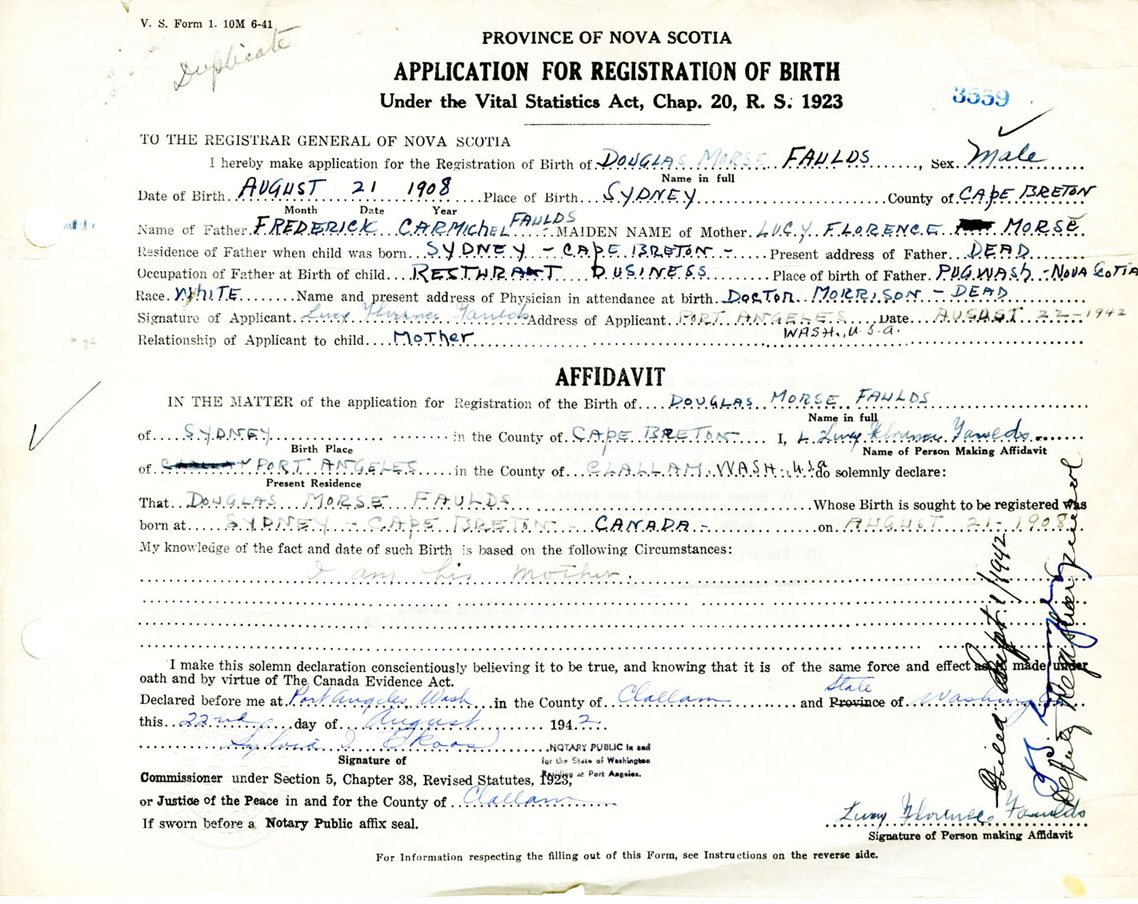 V. S. Form 1. 10M 6-41
Duplicate
PROVINCE OF NOVA SCOTIA
APPLICATION FOR REGISTRATION OF BIRTH
Under the Vital Statistics Act, Chap. 20, R. S. 1923
3559
TO THE REGISTRAR GENERAL OF NOVA SCOTIA
I hereby make application for the Registration of Birth of DOUGLAS MORSE FAULDS, Sex Male
Name in full
Date of Birth AUGUST 21 1908 Place of Birth SYDNEY County of CAPE BRETON
Month Date Year
Name of Father FREDERICK CARMICHEL FAULDS MAIDEN NAME of Mother LUCY FLORENCE MORSE
Residence of Father when child was born SYDNEY - CAPE BRETON - Present address of Father DEAD
Occupation of Father at Birth of child RESTHRANT BUSINESS Place of birth of Father PUGWASH - NOVA SCOTIA
Race WHITE Name and present address of Physician in attendance at birth DOCTOR MORRISON - DEAD
Signature of Applicant Lucy Florence Faulds Address of Applicant PORT ANGELES Date AUGUST 22 - 1942
WASH. U.S.A.
Relationship of Applicant to child MOTHER
AFFIDAVIT
IN THE MATTER of the application for Registration of the Birth of DOUGLAS MORSE FAULDS
Name in full
of SYDNEY in the County of CAPE BRETON I, Lucy Florence Faulds
Birth Place Name of Person Making Affidavit
of PORT ANGELES in the County of CLALLAM WASH. U.S.A do solemnly declare:
Present Residence
That DOUGLAS MORSE FAULDS Whose Birth is sought to be registered was
born at SYDNEY - CAPE BRETON - CANADA - on AUGUST 21 - 1908
My knowledge of the fact and date of such Birth is based on the following Circumstances:
I am his mother.
I make this solemn declaration conscientiously believing it to be true, and knowing that it is of the same force and effect as if made under
oath and by virtue of The Canada Evidence Act.
State
Declared before me at Port Angeles Wash in the County of Clallam and Province of Washing
this 22nd day of August 1942.
Sylvia
NOTARY PUBLIC in and
for the State of Washington
Residing at Port Angeles.
Signature of
Commissioner under Section 5, Chapter 38, Revised Statutes, 1923,
or Justice of the Peace in and for the County of Clallam
If sworn before a Notary Public affix seal.
Lucy Florence Faulds
Signature of Person making Affidavit
For Information respecting the filling out of this Form, see Instructions on the reverse side.
Filed Sept. 1/1942
Deputy Registrar General